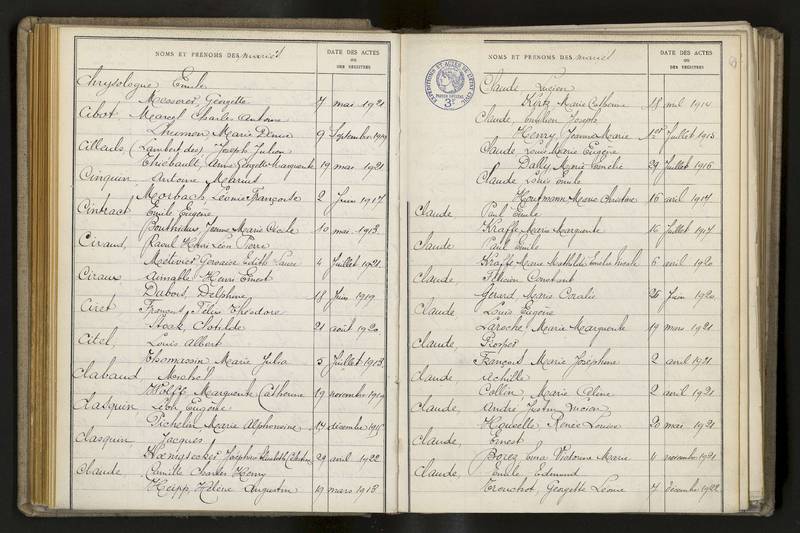 NOMS ET PRÉNOMS DES mariés
DATE DES ACTES
OU
DES REGISTRES
Chrysologue Emile
Messerer Georgette 7 mai 1921
Cibot, Marcel Charles Antoine
Marie Denise 9 Septembre 1919
Cilleuls (Lambert des) Joseph Julien
Thiébault, Georgette Marguerite 19 mai 1921
Cinquin Antoine Marius
Morbach, Léonie Françoise 2 Juin 1917
Cintract Emile Eugène
Jeanne Marie Cécile 10 mai 1913
Ciraud, Raoul Henri Léon Pierre
Métivier Edith Laure 4 Juillet 1921
Ciraux Aimable Henri Ernest
Dubois, Delphine 18 Juin 1919
Ciret François, Félix Théodore
Stock, Clotilde 21 août 1920
Citel, Louis Albert
Thomassin Marie Julia 5 Juillet 1913
Clabaud Michel
Wolff Marguerite Catherine 19 novembre 1919
Clasquin Léon Eugène
Pichelin Marie Alphonsine 14 décembre
Clasquin Jacques
Joséphine Elisabeth 29 avril 1922
Claude Camille Charles Henry
Heipp, Hélène Augustin 19 mars 1913
NOMS ET PRÉNOMS DES mariés
DATE DES ACTES
OU
DES REGISTRES
Claude Lucien
Marie Catherine 18 1914
Claude, Emilien Joseph
Henry Jeanne Marie 1er Juillet 1915
Claude Louis Marie Eugène
Dally Marie Emélie 29 Juillet 1916
Claude Louis Emile
Marie Christine 16 avril 1917
Claude Paul Emile
Kraffe Marie Marguerite 16 Juillet 1917
Claude Paul Emile
Kraffe Marie Mathilde 6 avril 1920
Claude Félicien Constant
Gérard Marie Coralie 26 Juin 1920
Claude Louis Eugène
Laroche Marie Marguerite 19 mars 1921
Claude, Prosper
François Marie Joséphine 2 avril 1921
Claude Achille
Collin Marie Céline 2 avril 1921
Claude, André Justin Lucien
Renée Louise 20 mai 1921
Claude, Ernest
Borey Victorine Marie 11 novembre 1921
Claude, Emile Edmond
Trouchot, Georgette Léonie 7 décembre 1922